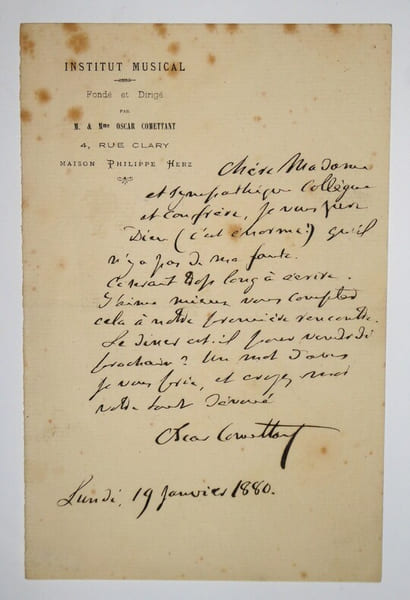 INSTITUT MUSICAL
Fondé et Dirigé
PAR
M. & Mme OSCAR COMETTANT
4, RUE CLARY
MAISON PHILIPPE HERZ
Chère Madame
et sympathique Collègue
et confrère, je vous jure
Dieu (c'est énorme!) qu'il
n'y a pas de ma faute.
Ce serait trop long à écrire.
J'aime mieux vous compter
cela à notre première rencontre.
Le diner est-il pour vendredi
prochain? Un mot
je vous prie, et croyez moi
votre tout dévoué
Oscar Comettant
Lundi, 19 janvier 1880.